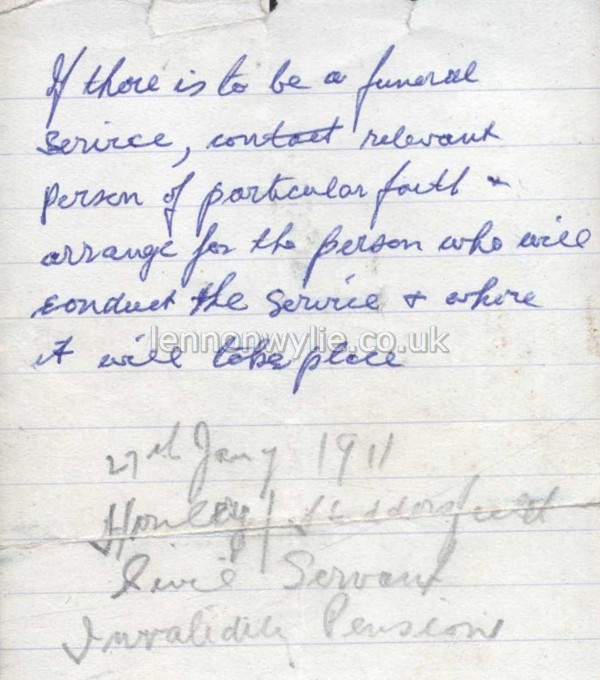 If there is to be a funeral
Service, contact relevant
person of particular faith &
arrange for the person who will
conduct the service & where
lennonwylie.co.uk
it will take place
27th Jany 1911
Honley / Huddersfield
Civil Servant
Invalidity Pension